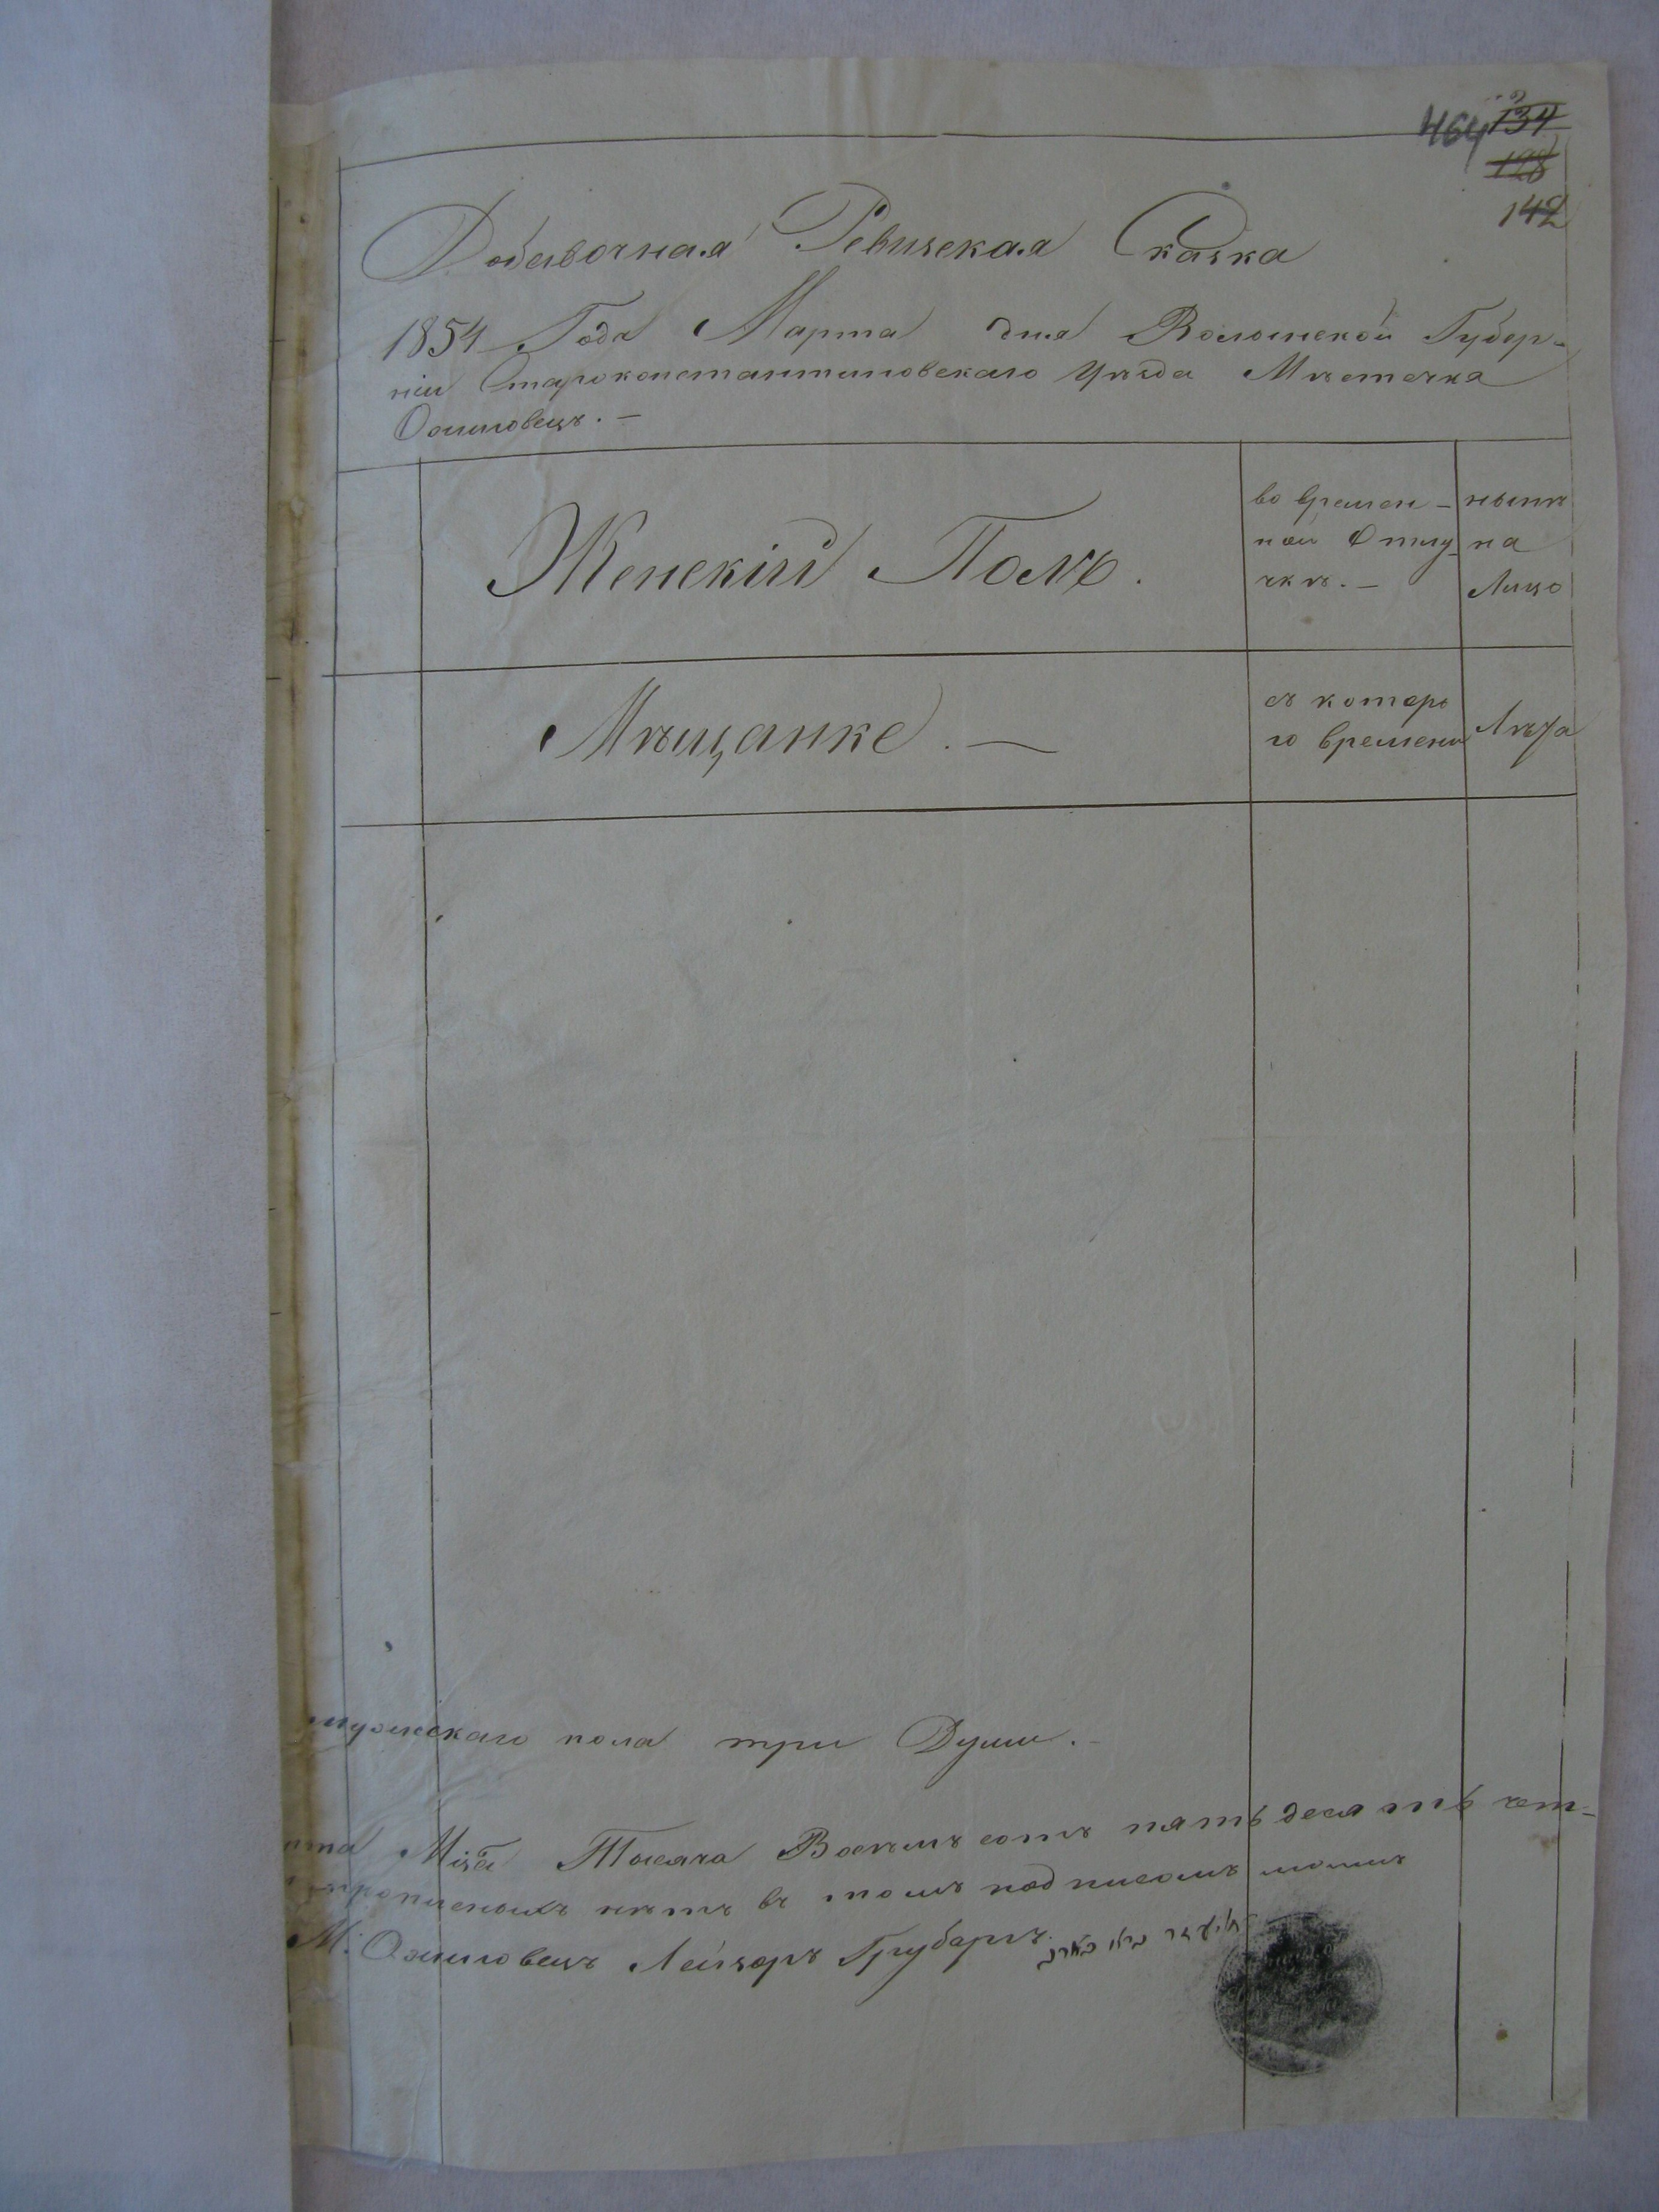 464 134
128
142
Добавочная Ревизская Сказка
1854 Года Марта дня Волынской Губер-
нiи Староконстантиновскаго Уѣзда Мѣстечка
Ожиговецъ. —
Женскiй Полъ.
во времен-
ной Отлу-
чкѣ. —
нынѣ
на
Лицо
Мѣщанке. —
съ которо
го времени
Лѣта
мужескаго пола три Души. —
Мѣца Тысяча Восемъ сотъ пятьдесятъ чет-
прописныхъ нѣтъ въ томъ подписомъ моимъ
М: Ожиговецъ Лейзоръ Грубаръ